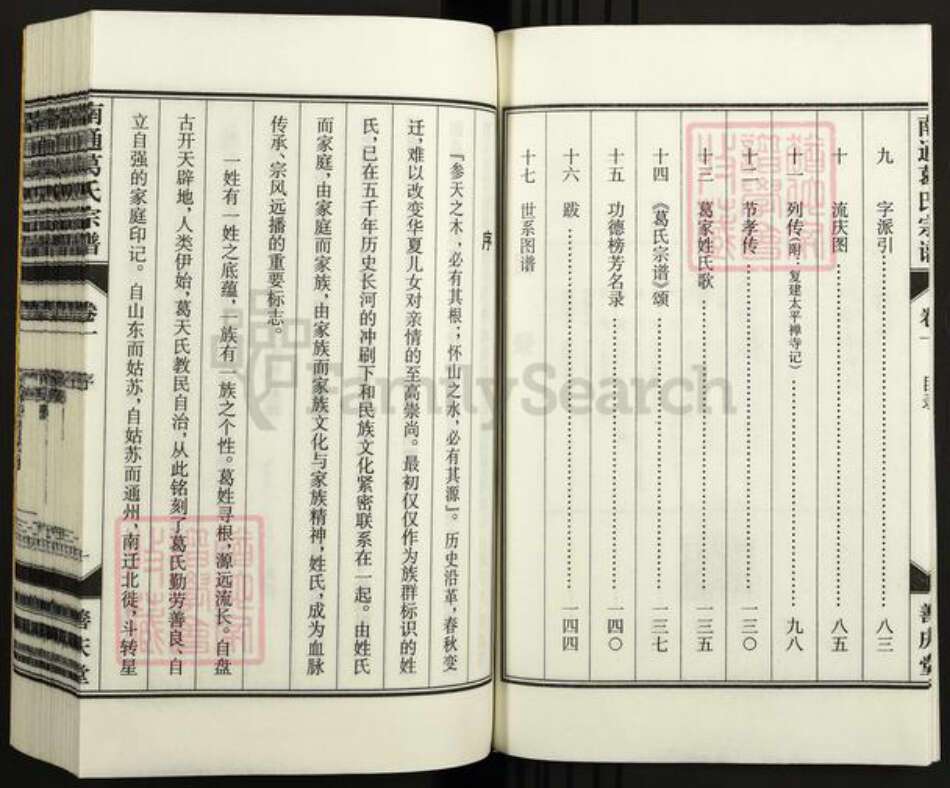 南通葛氏宗谱 卷一 目录 善庆堂
九 字派引 八三
十 流庆图 八五
十一 列传(附:复建太平禅寺记) 九八
十二 节孝传 一三〇
十三 葛家姓氏歌 一三五
十四 《葛氏宗谱》颂 一三七
十五 功德榜芳名录 一四〇
十六 跋 一四四
十七 世系图谱
序
『参天之木,必有其根;怀山之水,必有其源』。历史沿革,春秋变
迁,难以改变华夏儿女对亲情的至高崇尚。最初仅仅作为族群标识的姓
氏,已在五千年历史长河的冲刷下和民族文化紧密联系在一起。由姓氏
而家庭,由家庭而家族,由家族而家族文化与家族精神,姓氏,成为血脉
传承、宗风远播的重要标志。
一姓有一姓之底蕴,一族有一族之个性。葛姓寻根,源远流长。自盘
古开天辟地,人类伊始,葛天氏教民自治,从此铭刻了葛氏勤劳善良、自
立自强的家庭印记。自山东而姑苏,自姑苏而通州,南迁北徙,斗转星
南通葛氏宗谱 卷一 序 一 善庆堂
FamilySearch